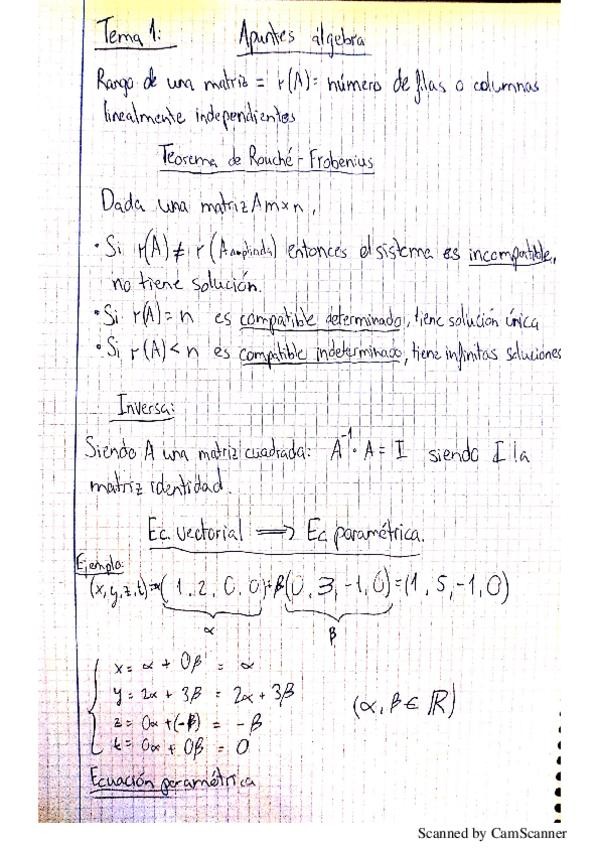 Tema 1: Apuntes álgebra
Rango de una matriz = r(A) = número de filas o columnas
linealmente independientes
Teorema de Rouché-Frobenius
Dada una matriz A m×n,
• Si r(A) ≠ r(A ampliada) entonces el sistema es incompatible,
no tiene solución.
• Si r(A) = n es compatible determinado, tiene solución única
• Si r(A) < n es compatible indeterminado, tiene infinitas soluciones
Inversa:
Siendo A una matriz cuadrada: A⁻¹ · A = I siendo I la
matriz identidad.
Ec. vectorial ⟹ Ec paramétrica.
Ejemplo:
(x,y,z,t) = α(1, 2, 0, 0) + β(0, 3, -1, 0) = (1, 5, -1, 0)
α β
x = α + 0β = α
y = 2α + 3β = 2α + 3β
z = 0α + (-β) = -β
t = 0α + 0β = 0
(α, β ∈ ℝ)
Ecuación paramétrica
Scanned by CamScanner